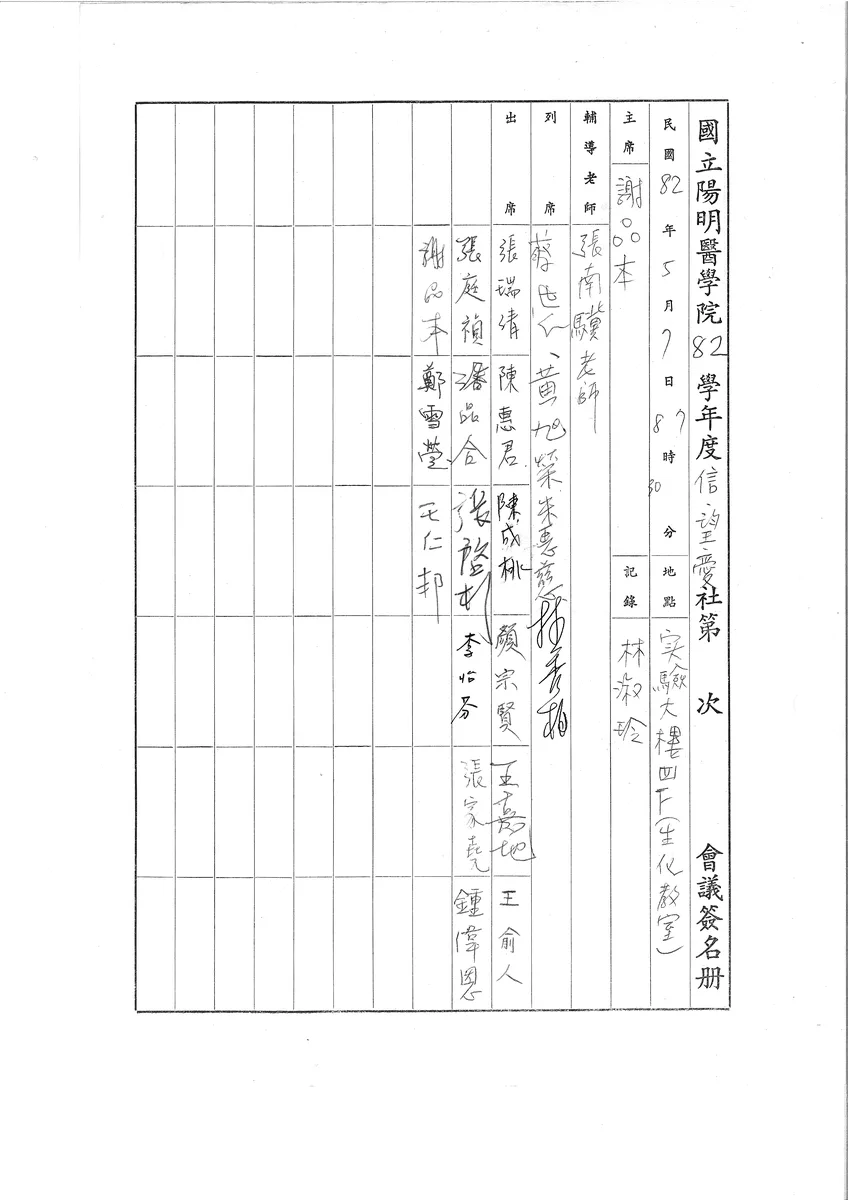 國立陽明醫學院82學年度信望愛社第 次 會議簽名册
民國82年5月7日 時30分 地點 实驗大樓四F(生化教室)
主席 謝品本 記錄 林淑玲
輔導老師 張南驥老師
列席 蔡世仁、黃旭榮 朱惠慈 林秀柏
出席 張瑞倩 陳惠君 陳成桃 顏宗賢 王嘉地 王俞人
張庭禎 潘品合 張啓彬 李怡芬 張家堯 鍾偉恩
謝品本 鄭雪瑩 王仁邦